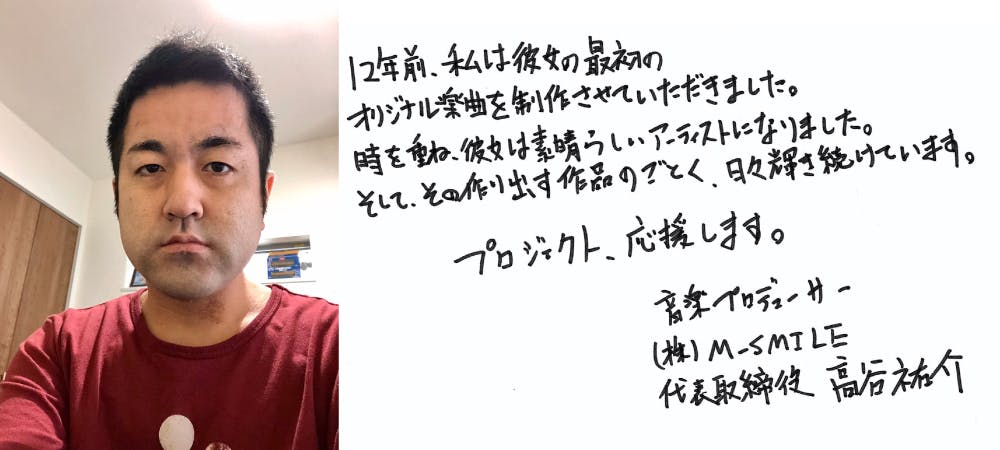 12年前、私は彼女の最初の
オリジナル楽曲を制作させていただきました。
時を重ね、彼女は素晴らしいアーティストになりました。
そして、その作り出す作品のごとく、日々輝き続けています。
プロジェクト、応援します。
音楽プロデューサー
(株) M-SMILE
代表取締役 高谷祐介